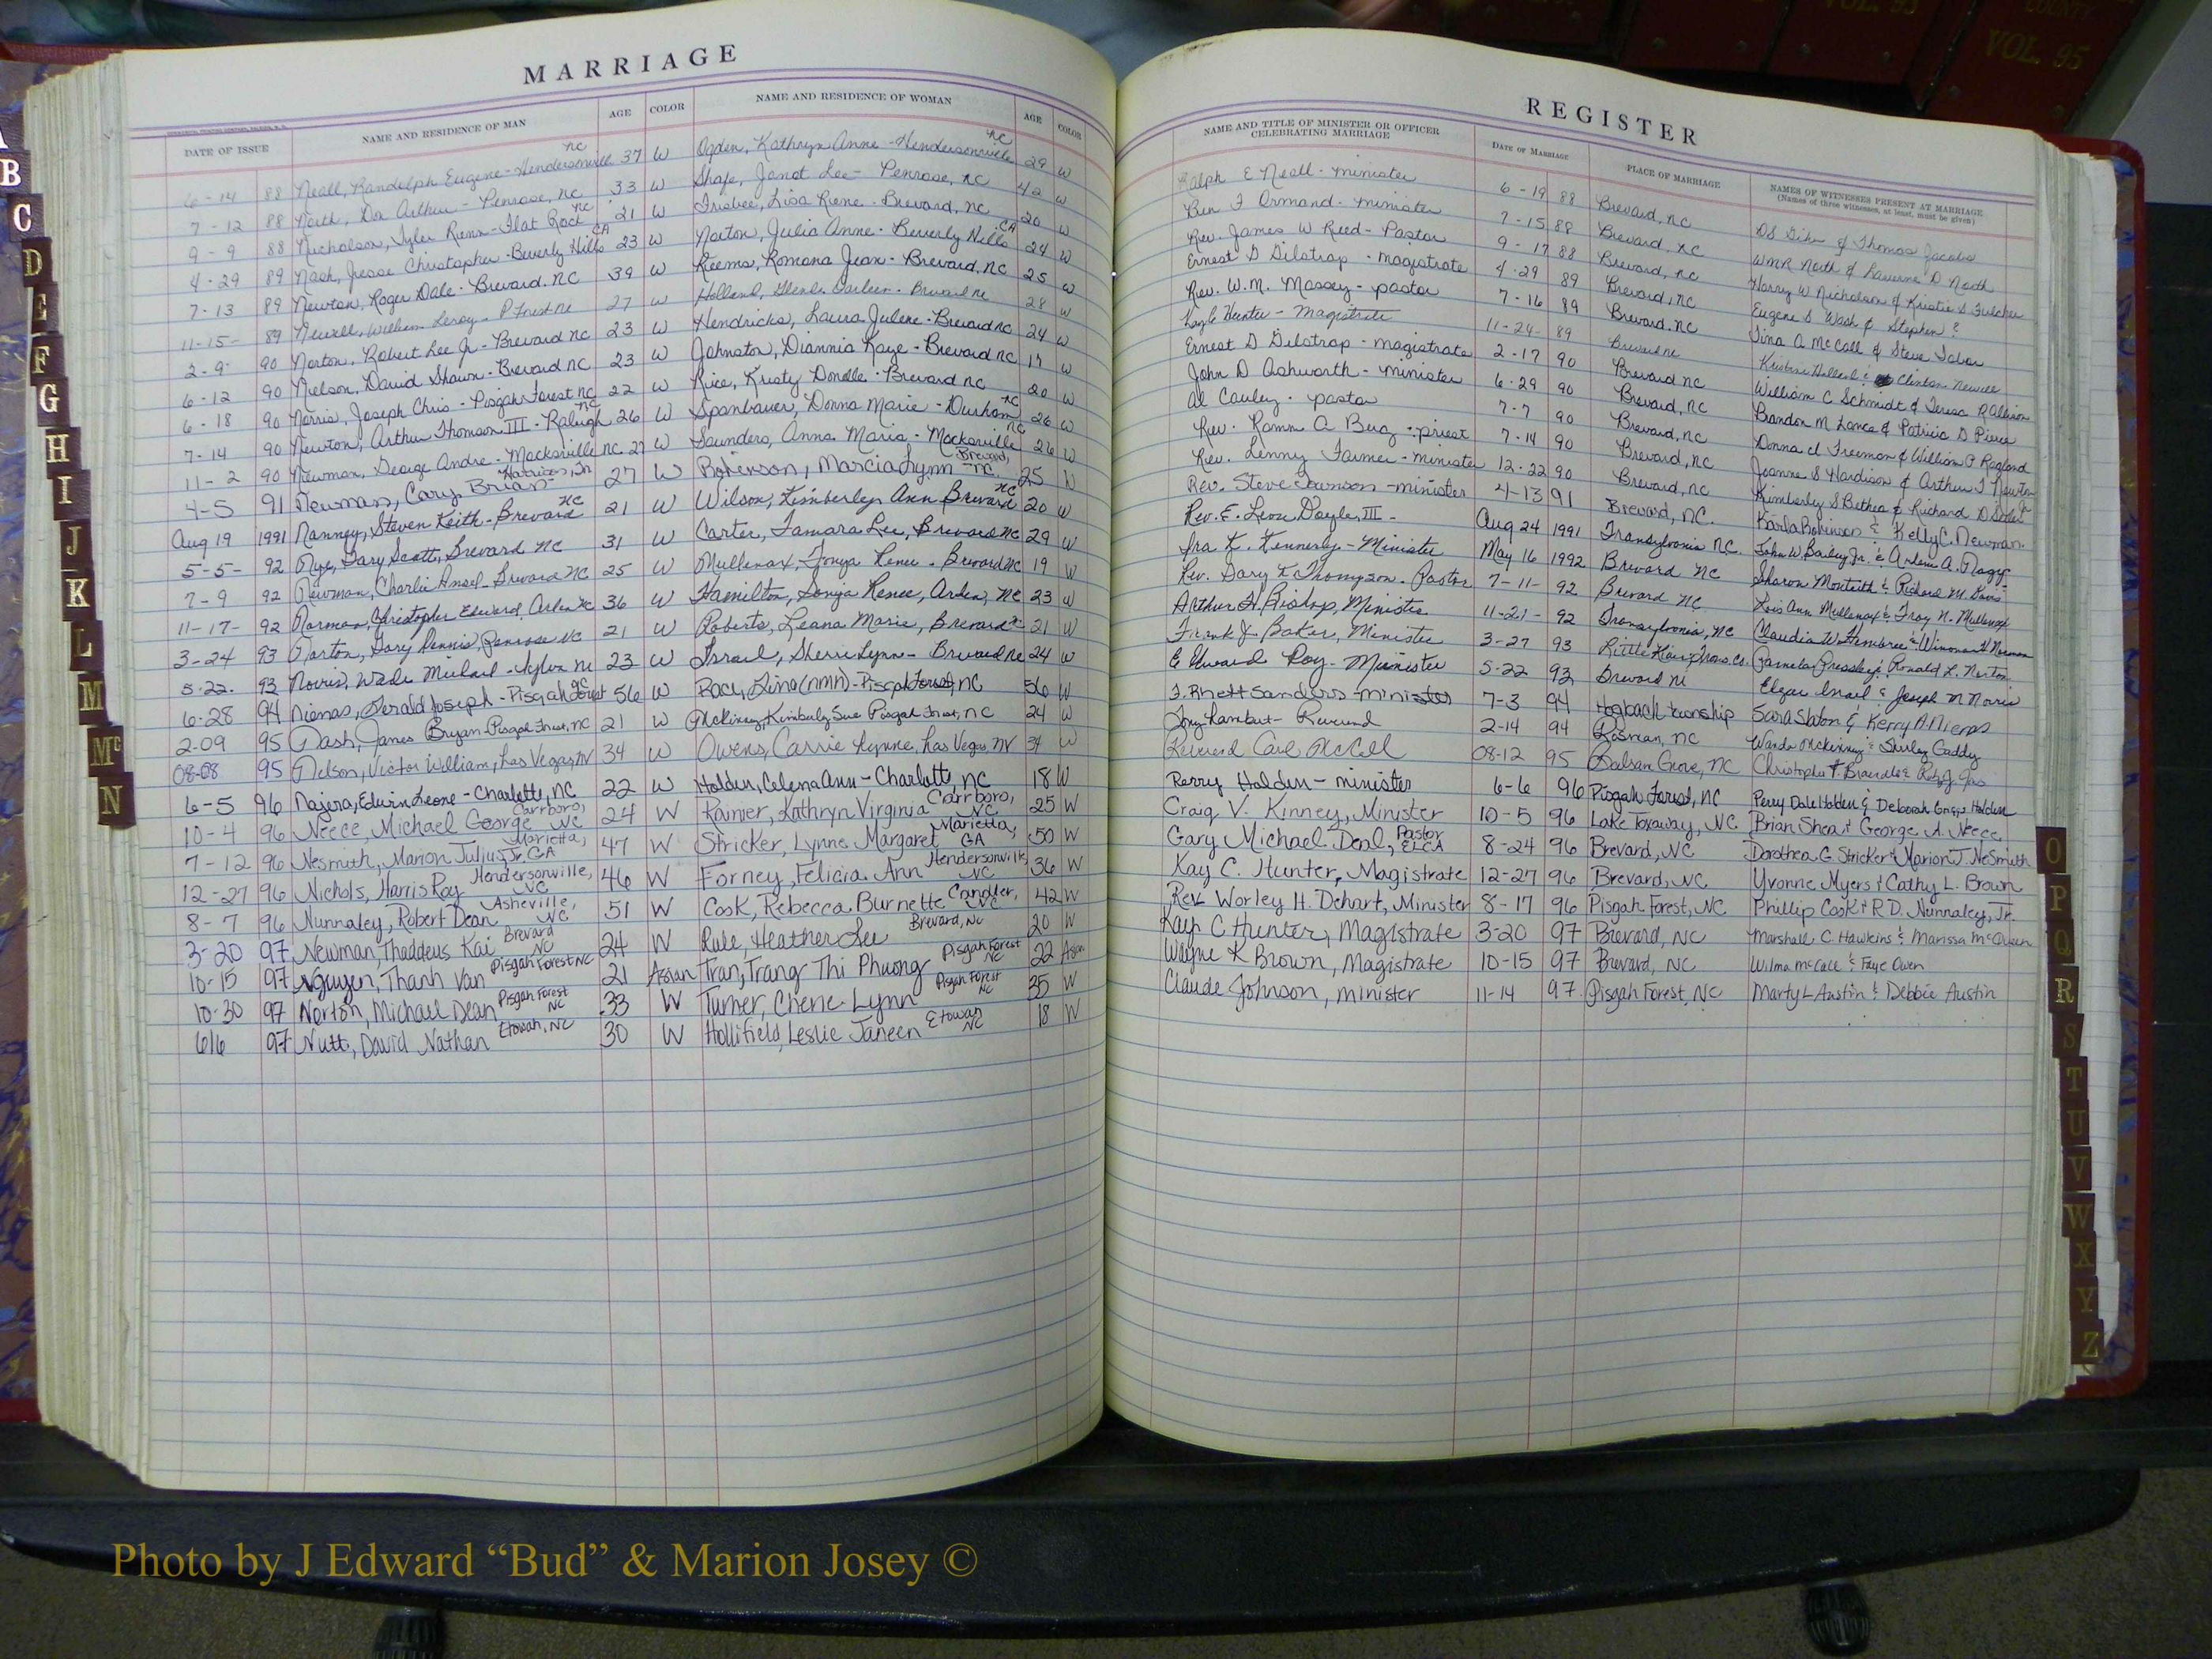 COUNTY
VOL. 95
VOL. 95
MARRIAGE
DATE OF ISSUE NAME AND RESIDENCE OF MAN AGE COLOR NAME AND RESIDENCE OF WOMAN AGE COLOR
6-14 88 Neall, Randolph Eugene - Hendersonville NC 37 W Ogden, Kathryn Anne - Hendersonville NC 29 W
7-12 88 North, Arthur - Penrose, NC 33 W Janet Lee - Penrose, NC 42 W
9-9 88 Nicholson, Tyler - Flat Rock NC 21 W Frisbee, Lisa Rene - Brevard, NC 20 W
4-29 89 Nash, Jesse Christopher - Beverly Hills CA 23 W Norton, Julia Anne - Beverly Hills CA 24 W
7-13 89 Newton, Roger Dale - Brevard, NC 39 W Reems, Romona Jean - Brevard, NC 25 W
11-15- 89 Newell, William Leroy - P Forest NC 27 W Holland, Darleen - Brevard NC 28 W
2-9 90 Norton, Robert Lee Jr - Brevard NC 23 W Hendricks, Laura Julene - Brevard NC 24 W
6-12 90 Nielson, David Shawn - Brevard NC 23 W Johnston, Diannia Kaye - Brevard NC 17 W
6-18 90 Norris, Joseph Chris - Pisgah Forest NC 22 W Rice, Kristy Donelle - Brevard NC 20 W
7-14 90 Newton, Arthur Thomson III - Raleigh NC 26 W Spanbauer, Donna Marie - Durham NC 26 W
11-2 90 Newman, George Andre - Mocksville NC 27 W Saunders, Anna Maria - Mocksville NC 26 W
4-5 91 Newman, Cary Brian - 27 W Robinson, Marcia Lynn - Brevard, NC 25 W
Aug 19 1991 Nanney, Steven Keith - Brevard NC 21 W Wilson, Kimberley Ann Brevard NC 20 W
5-5- 92 Nye, Gary Scott, Brevard NC 31 W Carter, Tamara Lee, Brevard NC 29 W
7-9 92 Newman, Charlie Ansel - Brevard NC 25 W Mullenax, Tonya Renee - Brevard NC 19 W
11-17- 92 Norman, Christopher Edward, Arden NC 36 W Hamilton, Sonja Renee, Arden, NC 23 W
3-24 93 Norton, Gary Dennis, Penrose NC 21 W Roberts, Leana Marie, Brevard NC 21 W
5-22- 93 Norris, Wade Michael - Sylva NC 23 W Israel, Sherri Lynn - Brevard NC 24 W
6-28 94 Nienas, Gerald Joseph - Pisgah Forest NC 56 W Lina (NMN) - Pisgah Forest, NC 56 W
2-09 95 Nash, James Bryan - Pisgah Forest, NC 21 W McKinney, Kimberly Sue Pisgah Forest, NC 24 W
08-08 95 Nelson, Victor William, Las Vegas, NV 34 W Owens, Carrie Lynne, Las Vegas, NV 34 W
6-5 96 Najera, Edwin Leone - Charlotte, NC 22 W Holden, Celena Ann - Charlotte, NC 18 W
10-4 96 Neece, Michael George Carrboro, NC 24 W Rainier, Kathryn Virginia Carrboro, NC 25 W
7-12 96 Nesmith, Marion Julius Jr. Marietta, GA 47 W Stricker, Lynne Margaret Marietta, GA 50 W
12-27 96 Nichols, Harris Ray Hendersonville, NC 46 W Forney, Felicia Ann Hendersonville NC 36 W
8-7 96 Nunnaley, Robert Dean Asheville, NC 51 W Cook, Rebecca Burnette Candler, NC 42 W
3-20 97 Newman, Thaddeus Kai Brevard NC 24 W Rule, Heather Lee Brevard, NC 20 W
10-15 97 Nguyen, Thanh Van Pisgah Forest NC 21 Asian Tran, Trang Thi Phuong Pisgah Forest NC 22 Asian
10-30 97 Norton, Michael Dean Pisgah Forest NC 33 W Turner, Cherie Lynn Pisgah Forest NC 35 W
6/6 97 Nutt, David Nathan Etowah, NC 30 W Hollifield, Leslie Janeen Etowah NC 18 W
REGISTER
NAME AND TITLE OF MINISTER OR OFFICER CELEBRATING MARRIAGE DATE OF MARRIAGE PLACE OF MARRIAGE NAMES OF WITNESSES PRESENT AT MARRIAGE
(Names of three witnesses, at least, must be given)
Ralph E Neall - minister 6-19 88 Brevard, NC & Thomas Jacobs
Ben F Ormand - minister 7-15 88 Brevard, NC North & Laverne D North
Rev. James W Reed - Pastor 9-17 88 Brevard, NC Harry W Nicholson & Kristie S Fulcher
Ernest D Gilstrap - magistrate 4-29 89 Brevard, NC Eugene S Wash & Stephen ?
Rev. W.M. Massey - pastor 7-16 89 Brevard, NC Tina A McCall & Steve Tabor
Kaye Hunter - Magistrate 11-24- 89 Brevard NC Clinton Newell
Ernest D Gilstrap - magistrate 2-17 90 Brevard NC William C Schmidt & Teresa R
John D Ashworth - minister 6-29 90 Brevard, NC Brandon M Lance & Patricia D Pierce
Al Cauley - pastor 7-7 90 Brevard, NC Donna J Freeman & William P Ragland
Rev. A Berg - priest 7-14 90 Brevard, NC Joanne S Hardison & Arthur T Newton
Rev. Lenny Farmer - minister 12-22 90 Brevard, NC Kimberly S Bethea & Richard D
Rev. Steve - minister 4-13 91 Brevard, NC. Karla Robinson & Kelly C. Newman
Rev. E. Leon Doyle, III - Aug 24 1991 Transylvania NC. John W. Bailey Jr. & A.
Ira K. Kennerly - Minister May 16 1992 Brevard NC Sharon Monteith & Richard M. Davis
Rev. Gary K Thompson - Pastor 7-11- 92 Brevard NC Lois Ann Mullenax & Troy N. Mullenax
Arthur H Bishop, Minister 11-21- 92 Transylvania, NC Claudia W. & Winona H Norman
Frank J. Baker, Minister 3-27 93 Little Trans. Co. Pamela Pressley & Ronald L. Norton
E Edward Roy - Minister 5-22 93 Brevard NC Israel & Joseph M Norris
F. Rhett Sanders - minister 7-3 94 Hogback township Sara Slaton & Kerry A Nienas
Tony Lambert - Reverend 2-14 94 Rosman, NC Wanda McKinney & Shirley Gaddy
Reverend Carl McCall 08-12 95 Balsam Grove, NC
Perry Holden - minister 6-6 96 Pisgah Forest, NC Perry Dale Holden & Deborah Holden
Craig V. Kinney, Minister 10-5 96 Lake Toxaway, NC Brian Shea & George A. Neece
Gary Michael Deal, Pastor ELCA 8-24 96 Brevard, NC Dorothea G Stricker & Marion J. NeSmith
Kay C. Hunter, Magistrate 12-27 96 Brevard, NC Yvonne Myers & Cathy L. Brown
Rev. Worley H. Dehart, Minister 8-17 96 Pisgah Forest, NC Phillip Cook & R.D. Nunnaley, Jr.
Kay C Hunter, Magistrate 3-20 97 Brevard, NC Marshall C. Hawkins & Marissa McQueen
Wayne K Brown, Magistrate 10-15 97 Brevard, NC Wilma McCall & Faye Owen
Claude Johnson, minister 11-14 97 Pisgah Forest, NC Marty L Austin & Debbie Austin
A
B
C
D
E
F
G
H
I
J
K
L
M
Mc
N
O
P
Q
R
S
T
U
V
W
X
Y
Z
Photo by J Edward “Bud” & Marion Josey ©